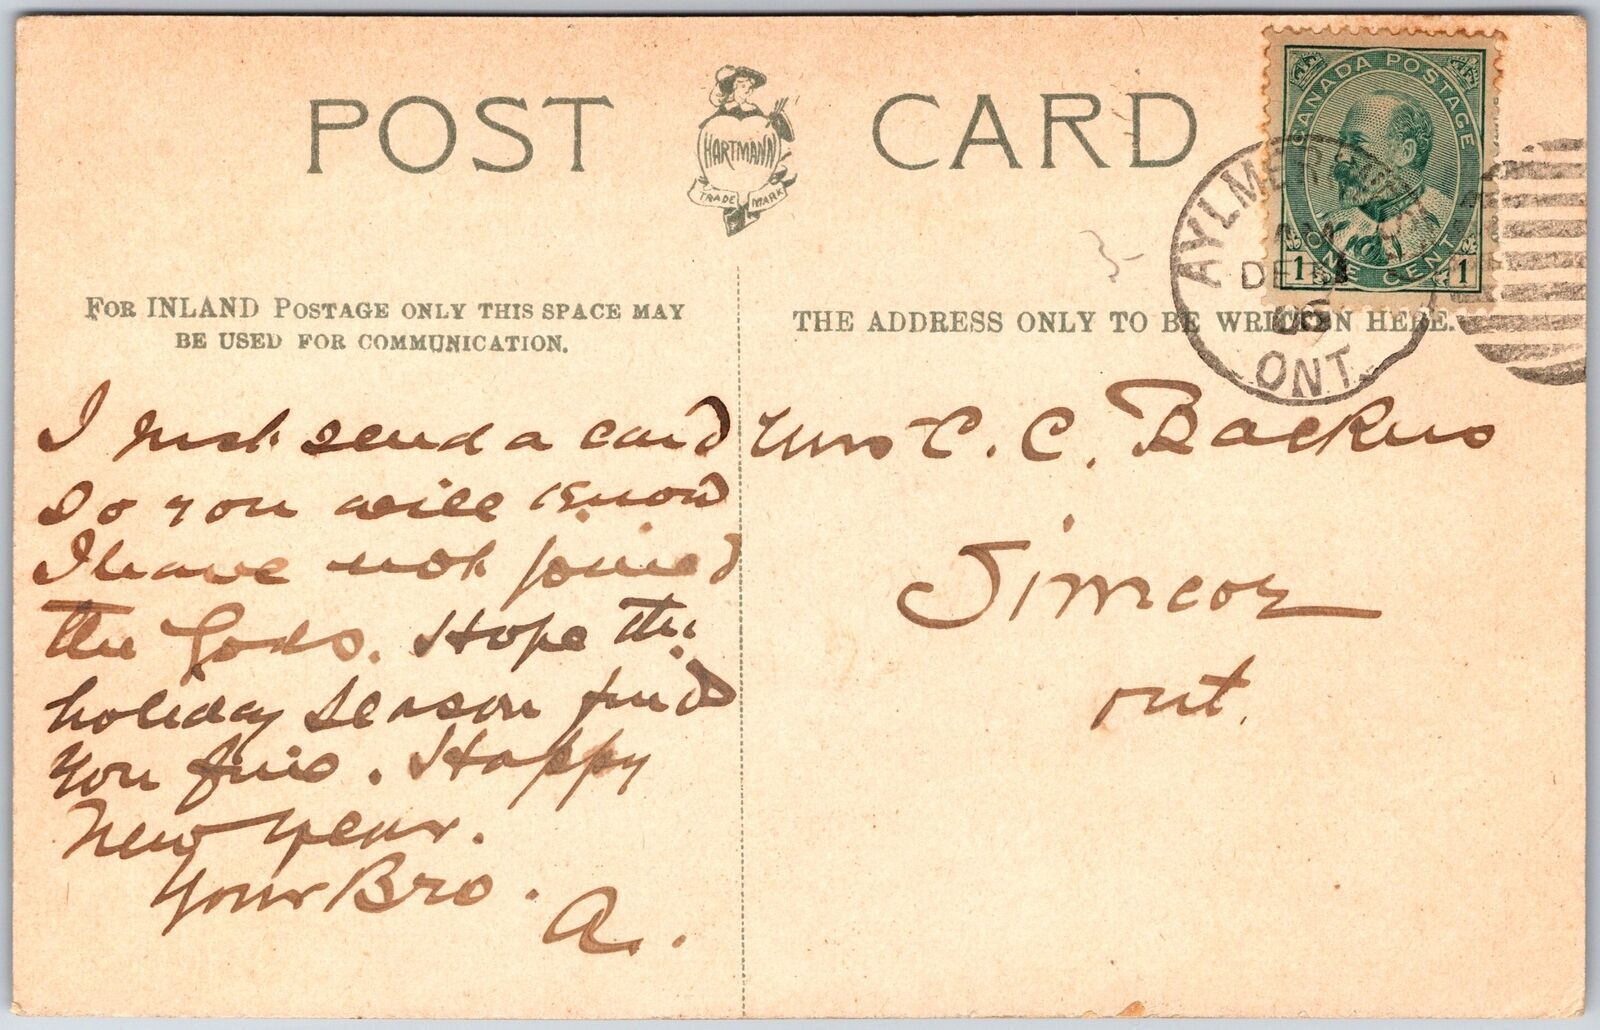 POST CARD
HARTMANN
TRADE MARK
CANADA POSTAGE
1 ONE CENT 1
AYLMER
DE
09
ONT.
FOR INLAND POSTAGE ONLY THIS SPACE MAY
BE USED FOR COMMUNICATION.
THE ADDRESS ONLY TO BE WRITTEN HERE.
I just send a card
So you will know
I have not joined
the Gods. Hope the
holiday season find
you fine. Happy
New Year.
Your Bro.
A.
Mrs C. C. Backus
Simcoe
Ont.